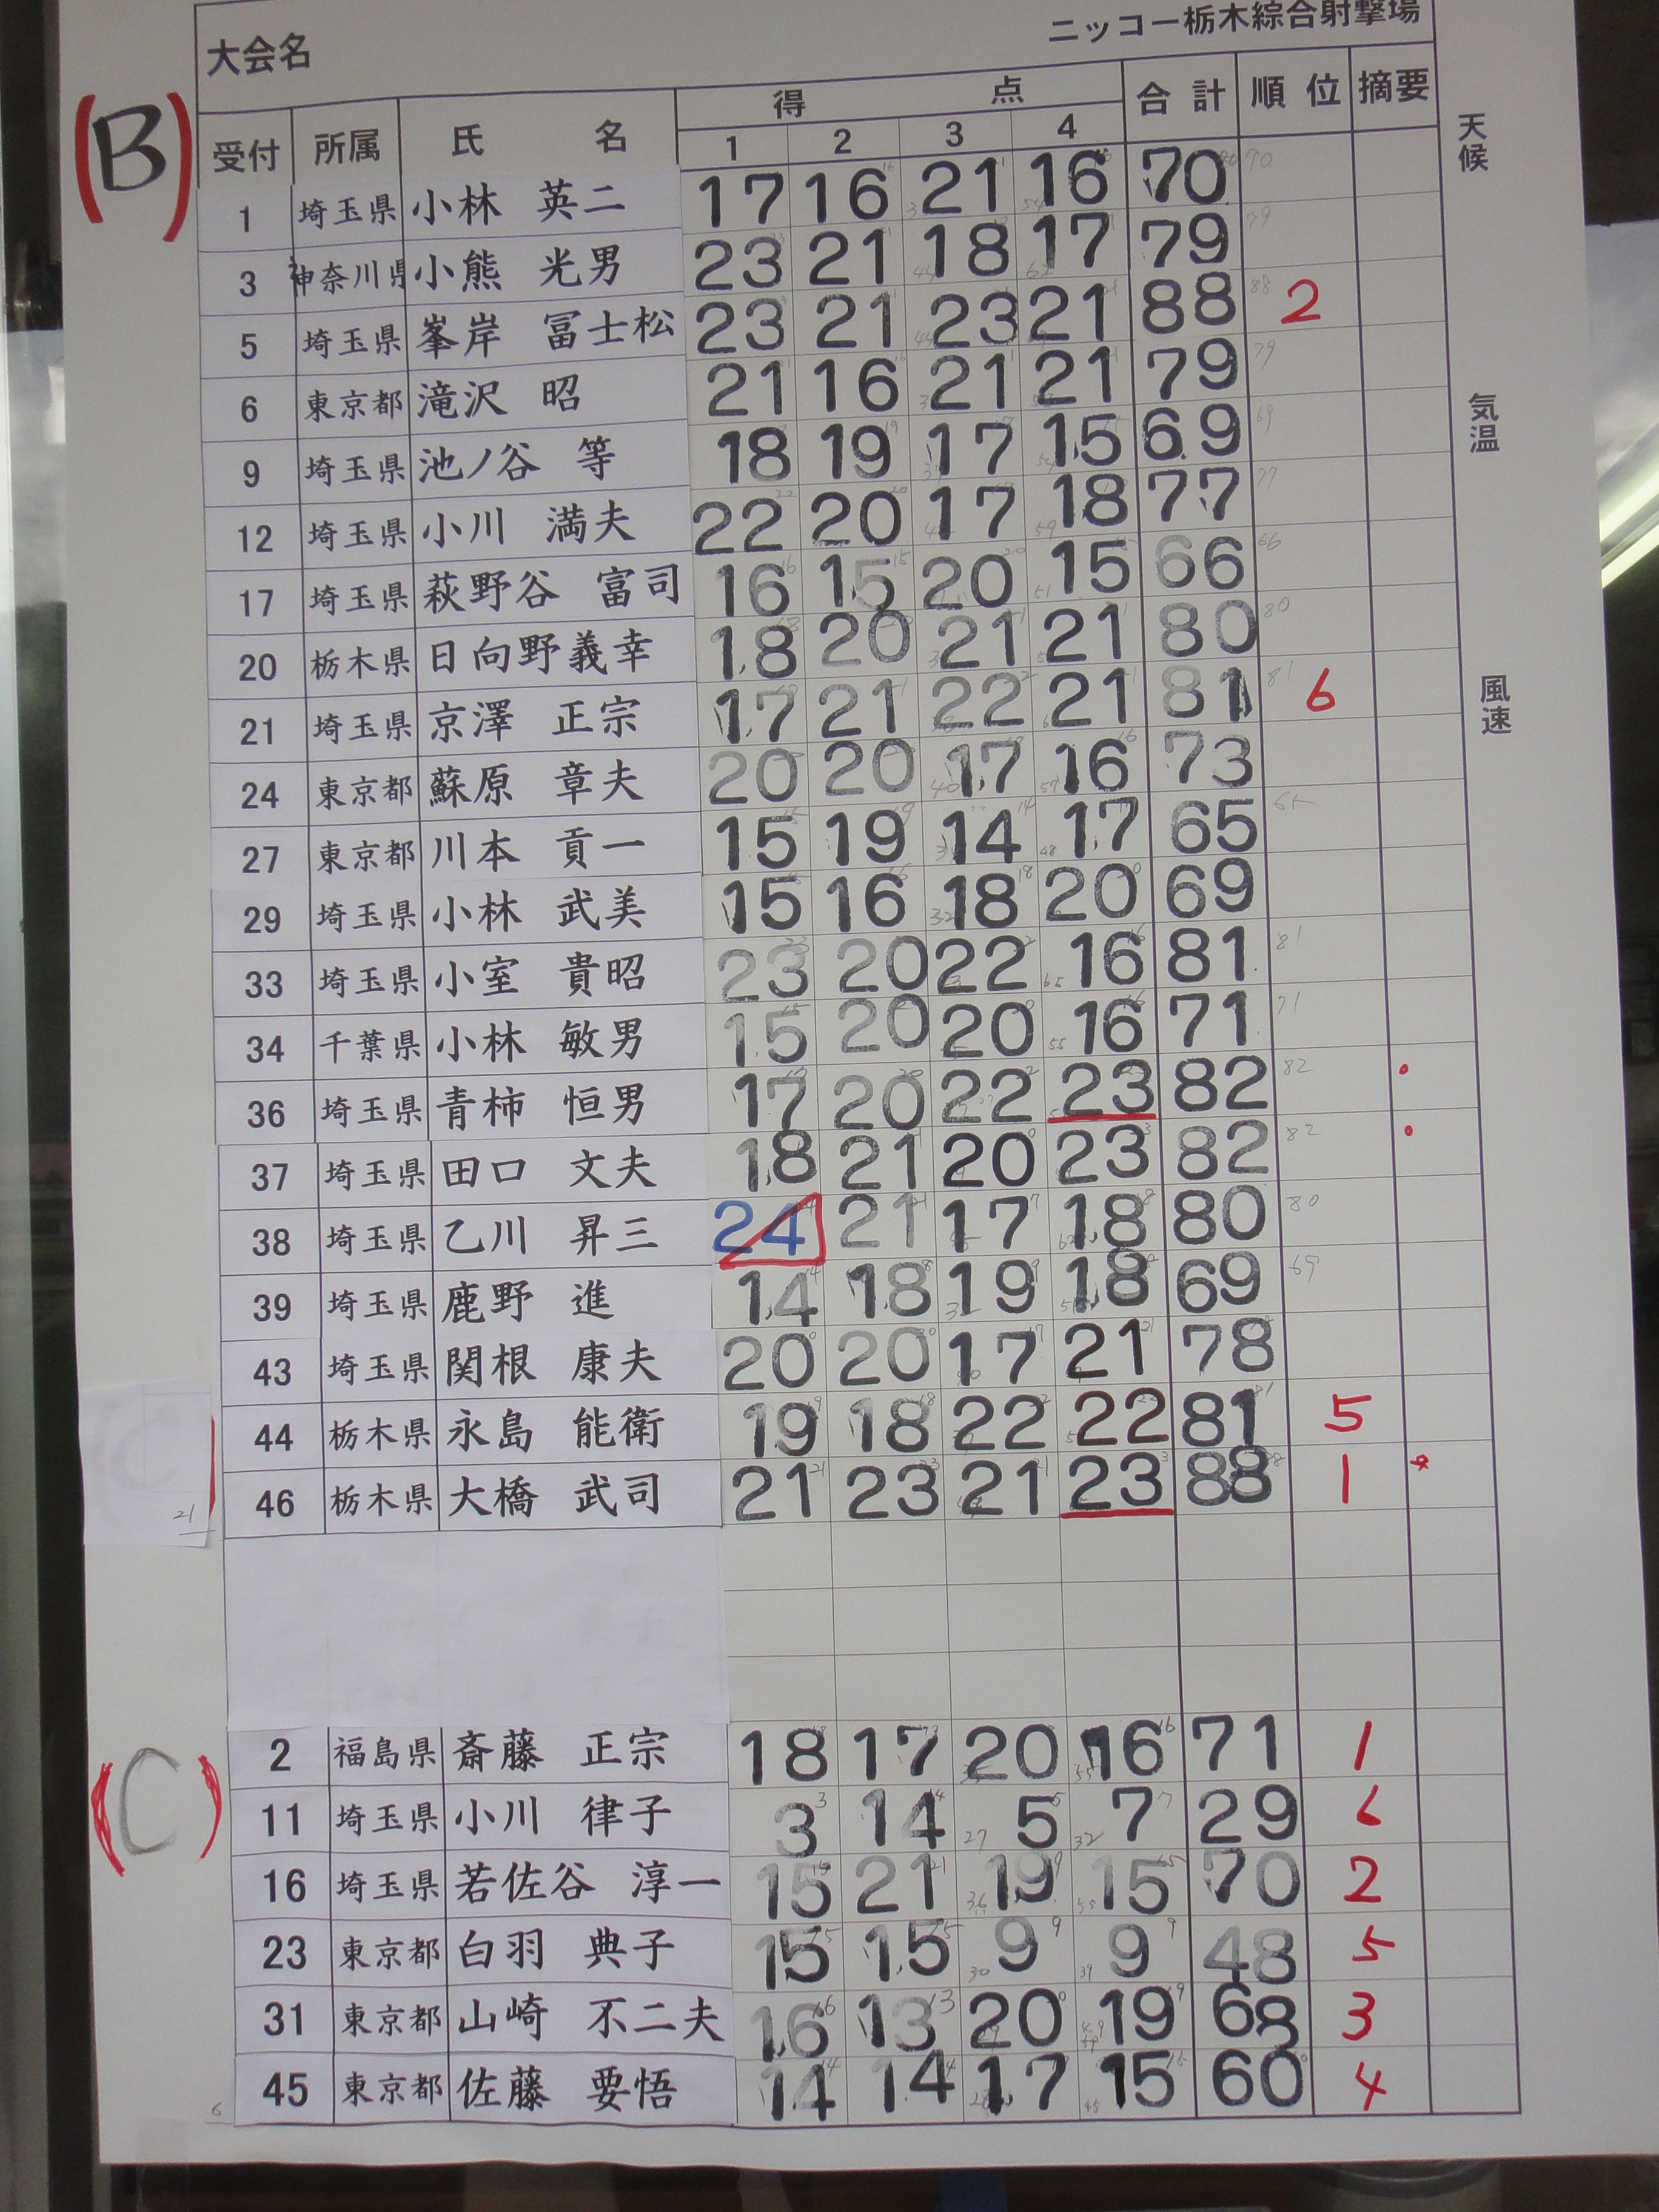 ニッコー栃木綜合射撃場
大会名
(B)
受付 所属 氏 名 得 点 合計 順位 摘要
1 2 3 4
天候
気温
風速
1 埼玉県 小林 英二 17 16 21 16 70
3 神奈川県 小熊 光男 23 21 18 17 79
5 埼玉県 峯岸 冨士松 23 21 23 21 88 2
6 東京都 滝沢 昭 21 16 21 21 79
9 埼玉県 池ノ谷 等 18 19 17 15 69
12 埼玉県 小川 満夫 22 20 17 18 77
17 埼玉県 萩野谷 富司 16 15 20 15 66
20 栃木県 日向野義幸 18 20 21 21 80
21 埼玉県 京澤 正宗 17 21 22 21 81 6
24 東京都 蘇原 章夫 20 20 17 16 73
27 東京都 川本 貢一 15 19 14 17 65
29 埼玉県 小林 武美 15 16 18 20 69
33 埼玉県 小室 貴昭 23 20 22 16 81
34 千葉県 小林 敏男 15 20 20 16 71
36 埼玉県 青柿 恒男 17 20 22 23 82
37 埼玉県 田口 文夫 18 21 20 23 82
38 埼玉県 乙川 昇三 24 21 17 18 80
39 埼玉県 鹿野 進 14 18 19 18 69
43 埼玉県 関根 康夫 20 20 17 21 78
44 栃木県 永島 能衛 19 18 22 22 81 5
46 栃木県 大橋 武司 21 23 21 23 88 1
(C)
2 福島県 斎藤 正宗 18 17 20 16 71 1
11 埼玉県 小川 律子 3 14 5 7 29 6
16 埼玉県 若佐谷 淳一 15 21 19 15 70 2
23 東京都 白羽 典子 15 15 9 9 48 5
31 東京都 山崎 不二夫 16 13 20 19 68 3
45 東京都 佐藤 要悟 14 14 17 15 60 4